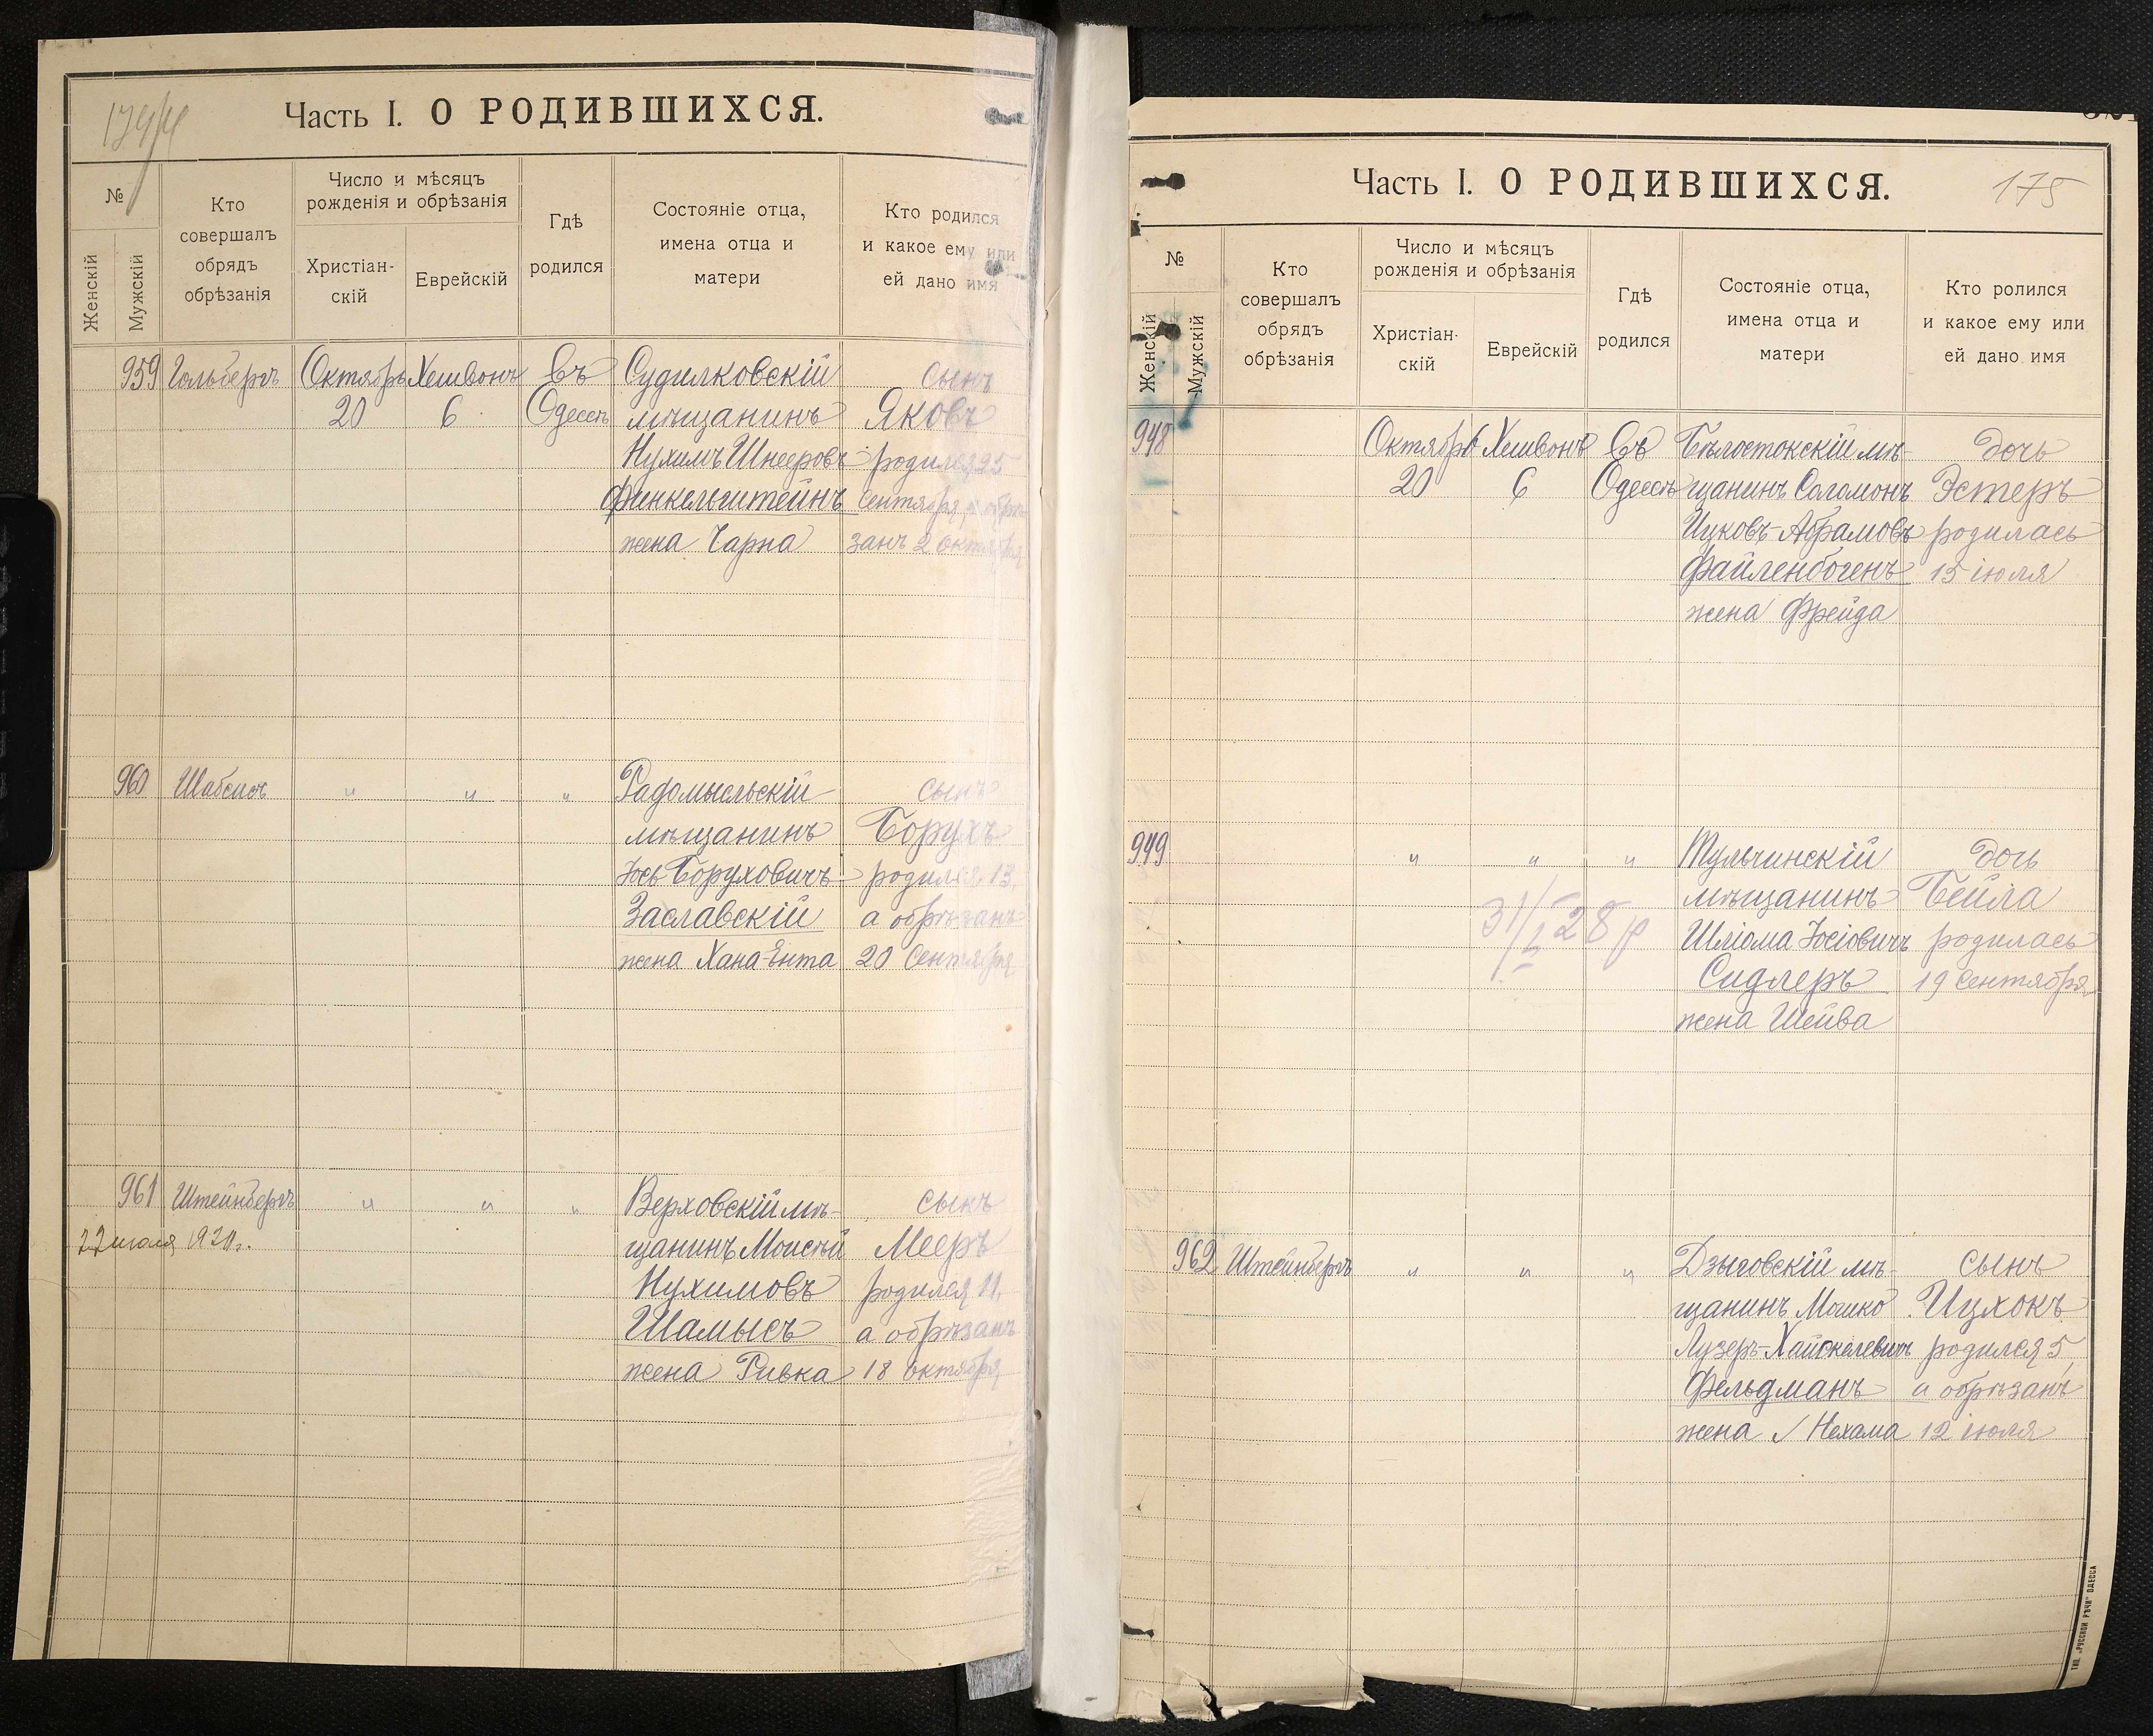 174
Часть I. О РОДИВШИХСЯ.
№
Женскій
Мужскій
Кто
совершалъ
обрядъ
обрѣзанія
Число и мѣсяцъ
рожденія и обрѣзанія
Христіан-
скій
Еврейскій
Гдѣ
родился
Состояніе отца,
имена отца и
матери
Кто родился
и какое ему или
ей дано имя
959 Гольбергъ Октябрь Хешвонъ въ Судилковскій сынъ
20 6 Одессѣ мѣщанинъ Яковъ
Нухимъ Шнееровъ родился 25
Финкельштейнъ сентября, а обрѣ-
жена Чарна занъ 2 октября
960 Шабсисъ " " " Радомысльскій сынъ
мѣщанинъ Борухъ
Іось Боруховичъ родился 13,
Заславскій а обрѣзанъ
жена Хана-Ента 20 Сентября
961 Штейнбергъ " " " Верховскій мѣ- сынъ
щанинъ Моисей Мееръ
Нухимовъ родился 11,
Шамысъ а обрѣзанъ
жена Ривка 18 октября
Часть I. О РОДИВШИХСЯ.
175
№
Женскій
Мужскій
Кто
совершалъ
обрядъ
обрѣзанія
Число и мѣсяцъ
рожденія и обрѣзанія
Христіан-
скій
Еврейскій
Гдѣ
родился
Состояніе отца,
имена отца и
матери
Кто ролился
и какое ему или
ей дано имя
948 Октябрь Хешвонъ въ Бѣлостокскій мѣ- дочь
20 6 Одессѣ щанинъ Соломонъ Эстеръ
Ицковъ-Абрамовъ родилась
Файленбогенъ 15 іюля
жена Фрейда
949 " " " Тульчинскій дочь
мѣщанинъ Бейла
Шліома Іосіовичъ родилась
Сидлеръ 19 Сентября
жена Шейва
962 Штейнбергъ " " " Дзыговскій мѣ- сынъ
щанинъ Мошко Ицхокъ
Лузеръ-Хайскелевичъ родился 5,
Фельдманъ а обрѣзанъ
жена Нехама 12 іюля
ТИП. „РУССКОЙ РѢЧИ" ОДЕССА